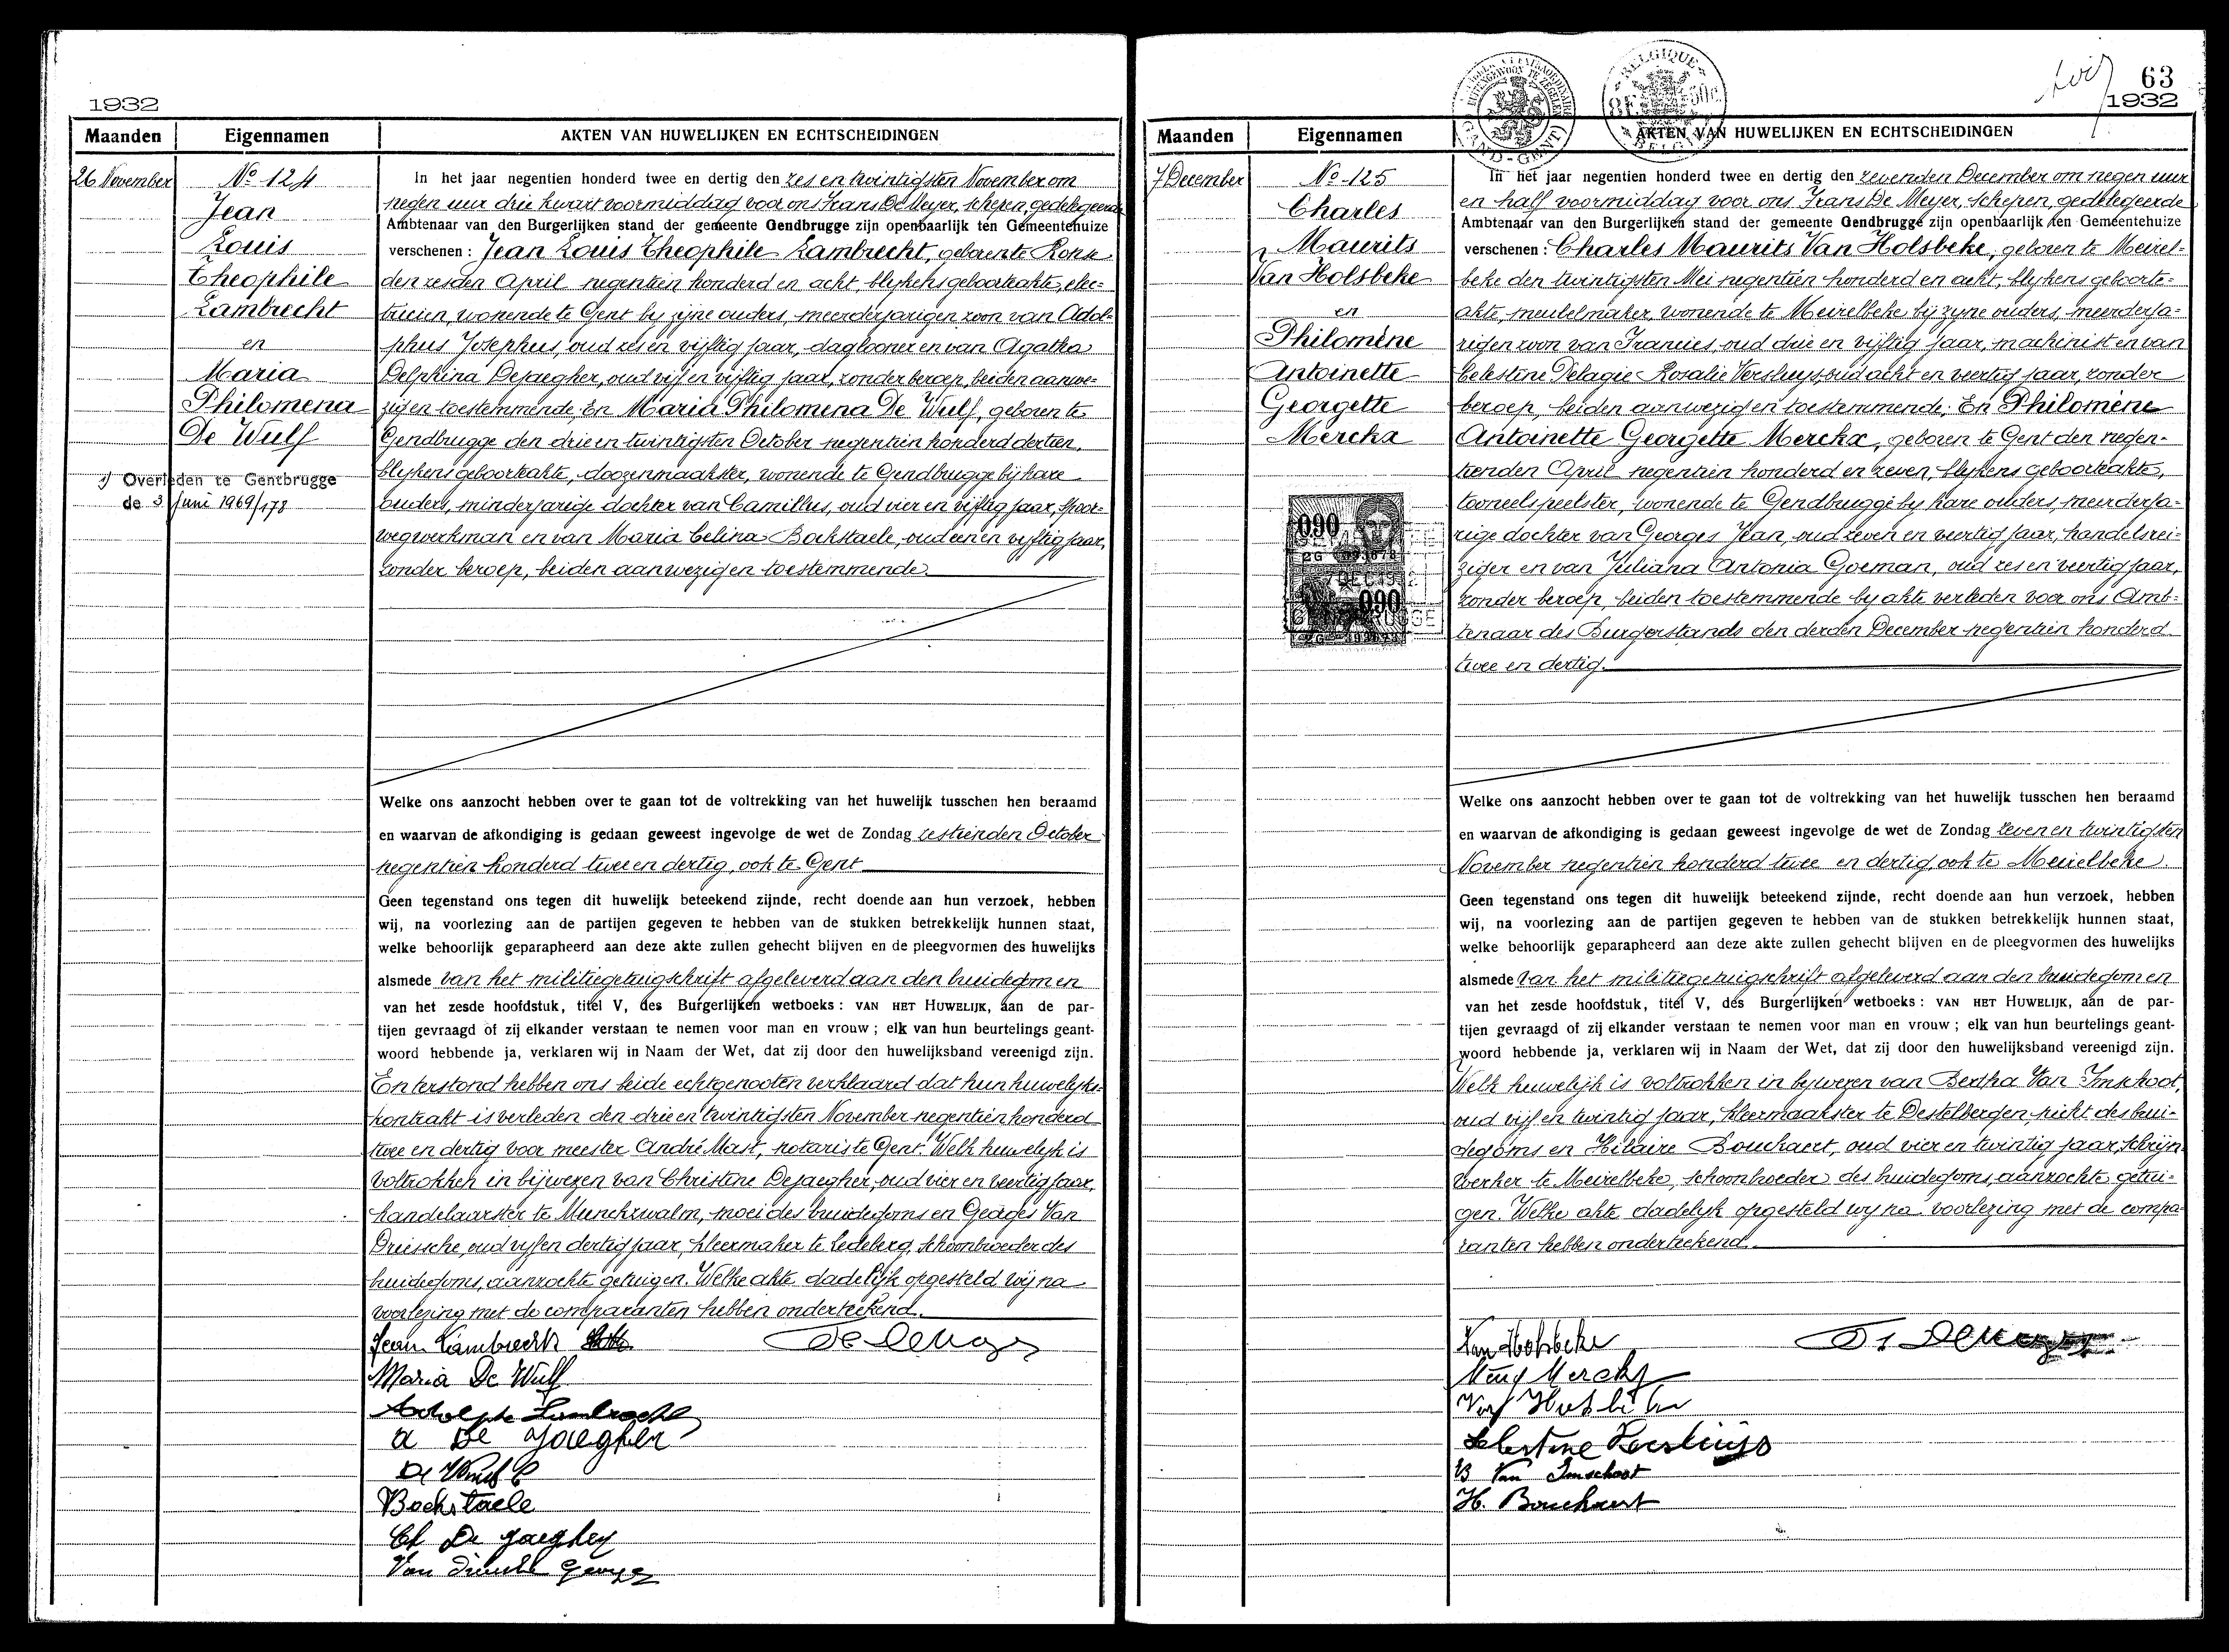 1932
Maanden Eigennamen AKTEN VAN HUWELIJKEN EN ECHTSCHEIDINGEN
26 November
No 124
Jean
Louis
Theophile
Lambrecht
en
Maria
Philomena
De Wulf
1) Overleden te Gentbrugge
de 3 Juni 1969/178
In het jaar negentien honderd twee en dertig den zes en twintigsten November om
negen uur drie kwart voormiddag voor ons Frans De Meyer, schepen, gedelegeerde
Ambtenaar van den Burgerlijken stand der gemeente Gendbrugge zijn openbaarlijk ten Gemeentehuize
verschenen : Jean Louis Theophile Lambrecht, geboren te Ronse
den zesden April negentien honderd en acht, blijkens geboorteakte, elec-
tricien, wonende te Gent bij zijne ouders, meerderjarigen zoon van Adol-
phus Josephus, oud zes en vijftig jaar, daglooner en van Agatha
Delphina Dejaegher, oud vijf en vijftig jaar, zonder beroep, beiden aanwe-
zig en toestemmende; En Maria Philomena De Wulf, geboren te
Gendbrugge den drie en twintigsten October negentien honderd dertien,
blijkens geboorteakte, doozenmaakster, wonende te Gendbrugge bij hare
ouders, minderjarige dochter van Camillus, oud vier en vijftig jaar, spoor-
wegwerkman en van Maria Celina Bockstaele, oud een en vijftig jaar,
zonder beroep, beiden aanwezig en toestemmende.
Welke ons aanzocht hebben over te gaan tot de voltrekking van het huwelijk tusschen hen beraamd
en waarvan de afkondiging is gedaan geweest ingevolge de wet de Zondag zestienden October
negentien honderd twee en dertig, ook te Gent
Geen tegenstand ons tegen dit huwelijk beteekend zijnde, recht doende aan hun verzoek, hebben
wij, na voorlezing aan de partijen gegeven te hebben van de stukken betrekkelijk hunnen staat,
welke behoorlijk geparapheerd aan deze akte zullen gehecht blijven en de pleegvormen des huwelijks
alsmede van het militiegetuigschrift afgeleverd aan den bruidegom en
van het zesde hoofdstuk, titel V, des Burgerlijken wetboeks : VAN HET HUWELIJK, aan de par-
tijen gevraagd of zij elkander verstaan te nemen voor man en vrouw ; elk van hun beurtelings geant-
woord hebbende ja, verklaren wij in Naam der Wet, dat zij door den huwelijksband vereenigd zijn.
En terstond hebben ons beide echtgenooten verklaard dat hun huwelijks-
kontrakt is verleden den drie en twintigsten November negentien honderd
twee en dertig voor meester André Mast, notaris te Gent. Welk huwelijk is
voltrokken in bijwezen van Christine Dejaegher, oud vier en veertig jaar,
handelaarster te Munckzwalm, moei des bruidegoms en Georges Van
Driessche, oud vijf en dertig jaar, kleermaker te Ledeberg, schoonbroeder des
bruidegoms, aanzochte getuigen. Welke akte dadelijk opgesteld wij na
voorlezing met de comparanten hebben onderteekend.
Jean Lambrecht
Maria De Wulf
Adolphe Lambrecht
a De Jaegher
De Wulf C
Bockstaele
Ch De Jaegher
Van Driessche Georges
63
1932
GAND-GENT
BELGIQUE
BELGIE
Maanden Eigennamen AKTEN VAN HUWELIJKEN EN ECHTSCHEIDINGEN
7 December
No 125
Charles
Maurits
Van Holsbeke
en
Philomène
Antoinette
Georgette
Merckx
090
7 DEC 1932
090
In het jaar negentien honderd twee en dertig den zevenden December om negen uur
en half voormiddag voor ons Frans De Meyer, schepen, gedelegeerde
Ambtenaar van den Burgerlijken stand der gemeente Gendbrugge zijn openbaarlijk ten Gemeentehuize
verschenen : Charles Maurits Van Holsbeke, geboren te Meirel-
beke den twintigsten Mei negentien honderd en acht, blijkens geboorte-
akte, meubelmaker, wonende te Meirelbeke bij zijne ouders, meerderja-
rigen zoon van Francies, oud drie en vijftig jaar, machinist en van
Celestine Pelagie Rosalie Versluys, oud acht en veertig jaar, zonder
beroep, beiden aanwezig en toestemmende; En Philomène
Antoinette Georgette Merckx, geboren te Gent den negen-
tienden April negentien honderd en zeven, blijkens geboorteakte,
tooneelspeelster, wonende te Gendbrugge bij hare ouders, meerderja-
rige dochter van Georges Jean, oud zeven en veertig jaar, handelsrei-
ziger en van Juliana Antonia Goeman, oud zes en veertig jaar,
zonder beroep, beiden toestemmende bij akte verleden voor ons Amb-
tenaar des Burgerstands den derden December negentien honderd
twee en dertig.
Welke ons aanzocht hebben over te gaan tot de voltrekking van het huwelijk tusschen hen beraamd
en waarvan de afkondiging is gedaan geweest ingevolge de wet de Zondag zeven en twintigsten
November negentien honderd twee en dertig, ook te Meirelbeke
Geen tegenstand ons tegen dit huwelijk beteekend zijnde, recht doende aan hun verzoek, hebben
wij, na voorlezing aan de partijen gegeven te hebben van de stukken betrekkelijk hunnen staat,
welke behoorlijk geparapheerd aan deze akte zullen gehecht blijven en de pleegvormen des huwelijks
alsmede van het militiegetuigschrift afgeleverd aan den bruidegom en
van het zesde hoofdstuk, titel V, des Burgerlijken wetboeks : VAN HET HUWELIJK, aan de par-
tijen gevraagd of zij elkander verstaan te nemen voor man en vrouw ; elk van hun beurtelings geant-
woord hebbende ja, verklaren wij in Naam der Wet, dat zij door den huwelijksband vereenigd zijn.
Welk huwelijk is voltrokken in bijwezen van Bertha Van Imschoot,
oud vijf en twintig jaar, kleermaakster te Destelbergen, nicht des brui-
degoms en Hilaire Bouckaert, oud vier en twintig jaar, schrijn-
werker te Meirelbeke, schoonbroeder des bruidegoms, aanzochte getui-
gen. Welke akte dadelijk opgesteld wij na voorlezing met de compa-
ranten hebben onderteekend.
Van Holsbeke
Merckx
Celestine Versluys
B Van Imschoot
H. Bouckaert